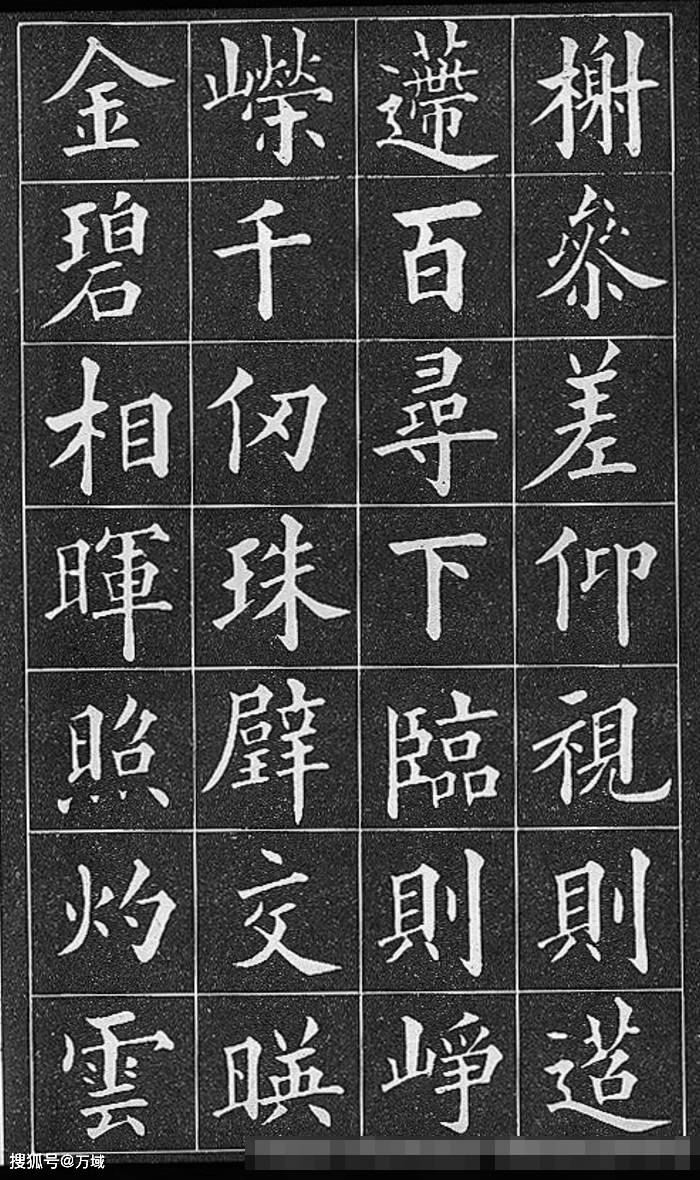 榭叅差仰視則迢
遰百尋下臨則崢
嶸千仞珠壁交暎
金碧相暉照灼雲
搜狐号@万域